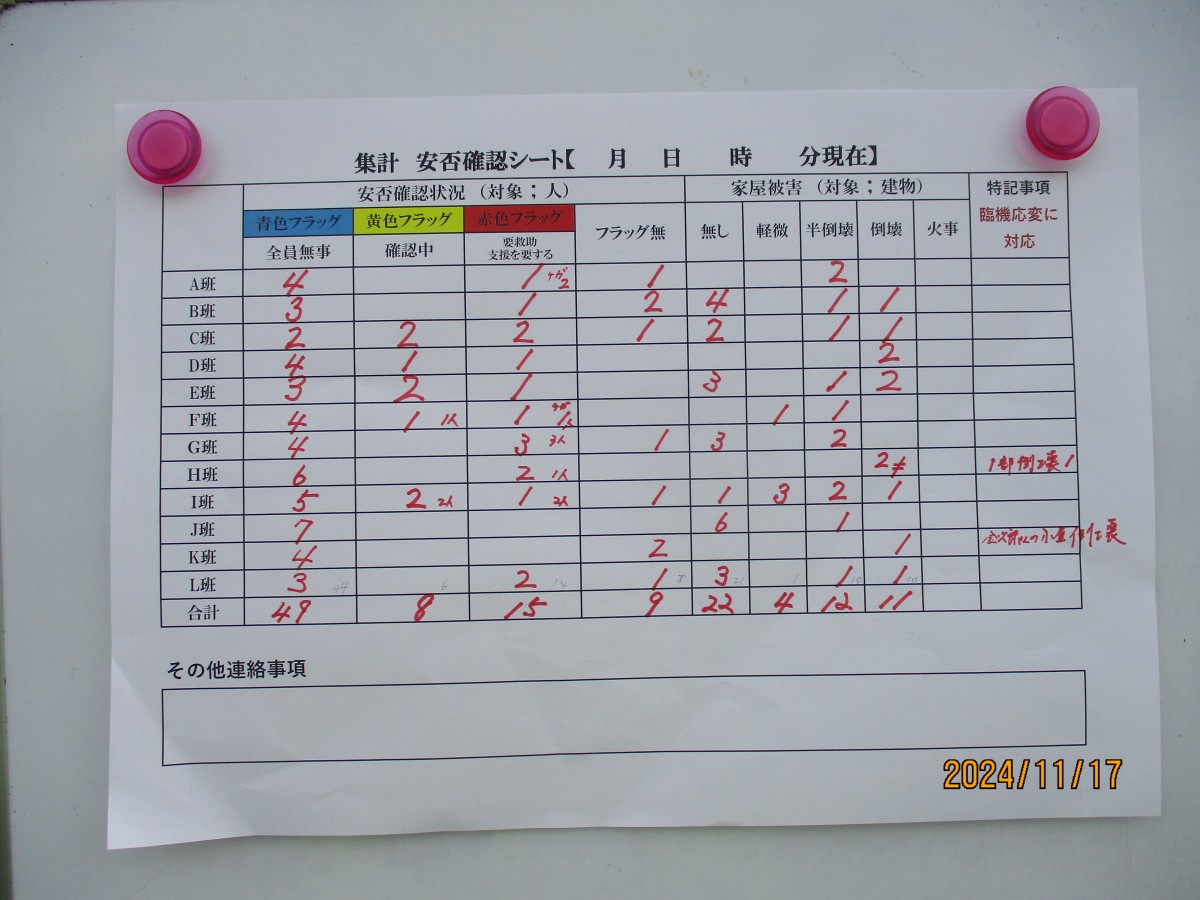 集計 安否確認シート【 月 日 時 分現在】
安否確認状況（対象；人） 家屋被害（対象；建物） 特記事項
臨機応変に
対応
青色フラッグ 黄色フラッグ 赤色フラッグ フラッグ無 無し 軽微 半倒壊 倒壊 火事
全員無事 確認中 要救助
支援を要する
A班 4 1 ケガ2 1 2
B班 3 1 2 4 1 1
C班 2 2 2 1 2 1 1
D班 4 1 1 2
E班 3 2 1 3 1 2
F班 4 1 1人 1 1人 1 1
G班 4 3 3人 1 3 2
H班 6 2 1人 2 1部倒壊1
I班 5 2 2人 1 2人 1 1 3 2 1
J班 7 6 1
K班 4 2 1
L班 3 44 6 2 14 1 8 3 21 1 1 10 1 10
合計 49 8 15 9 22 4 12 11
その他連絡事項
2024/11/17